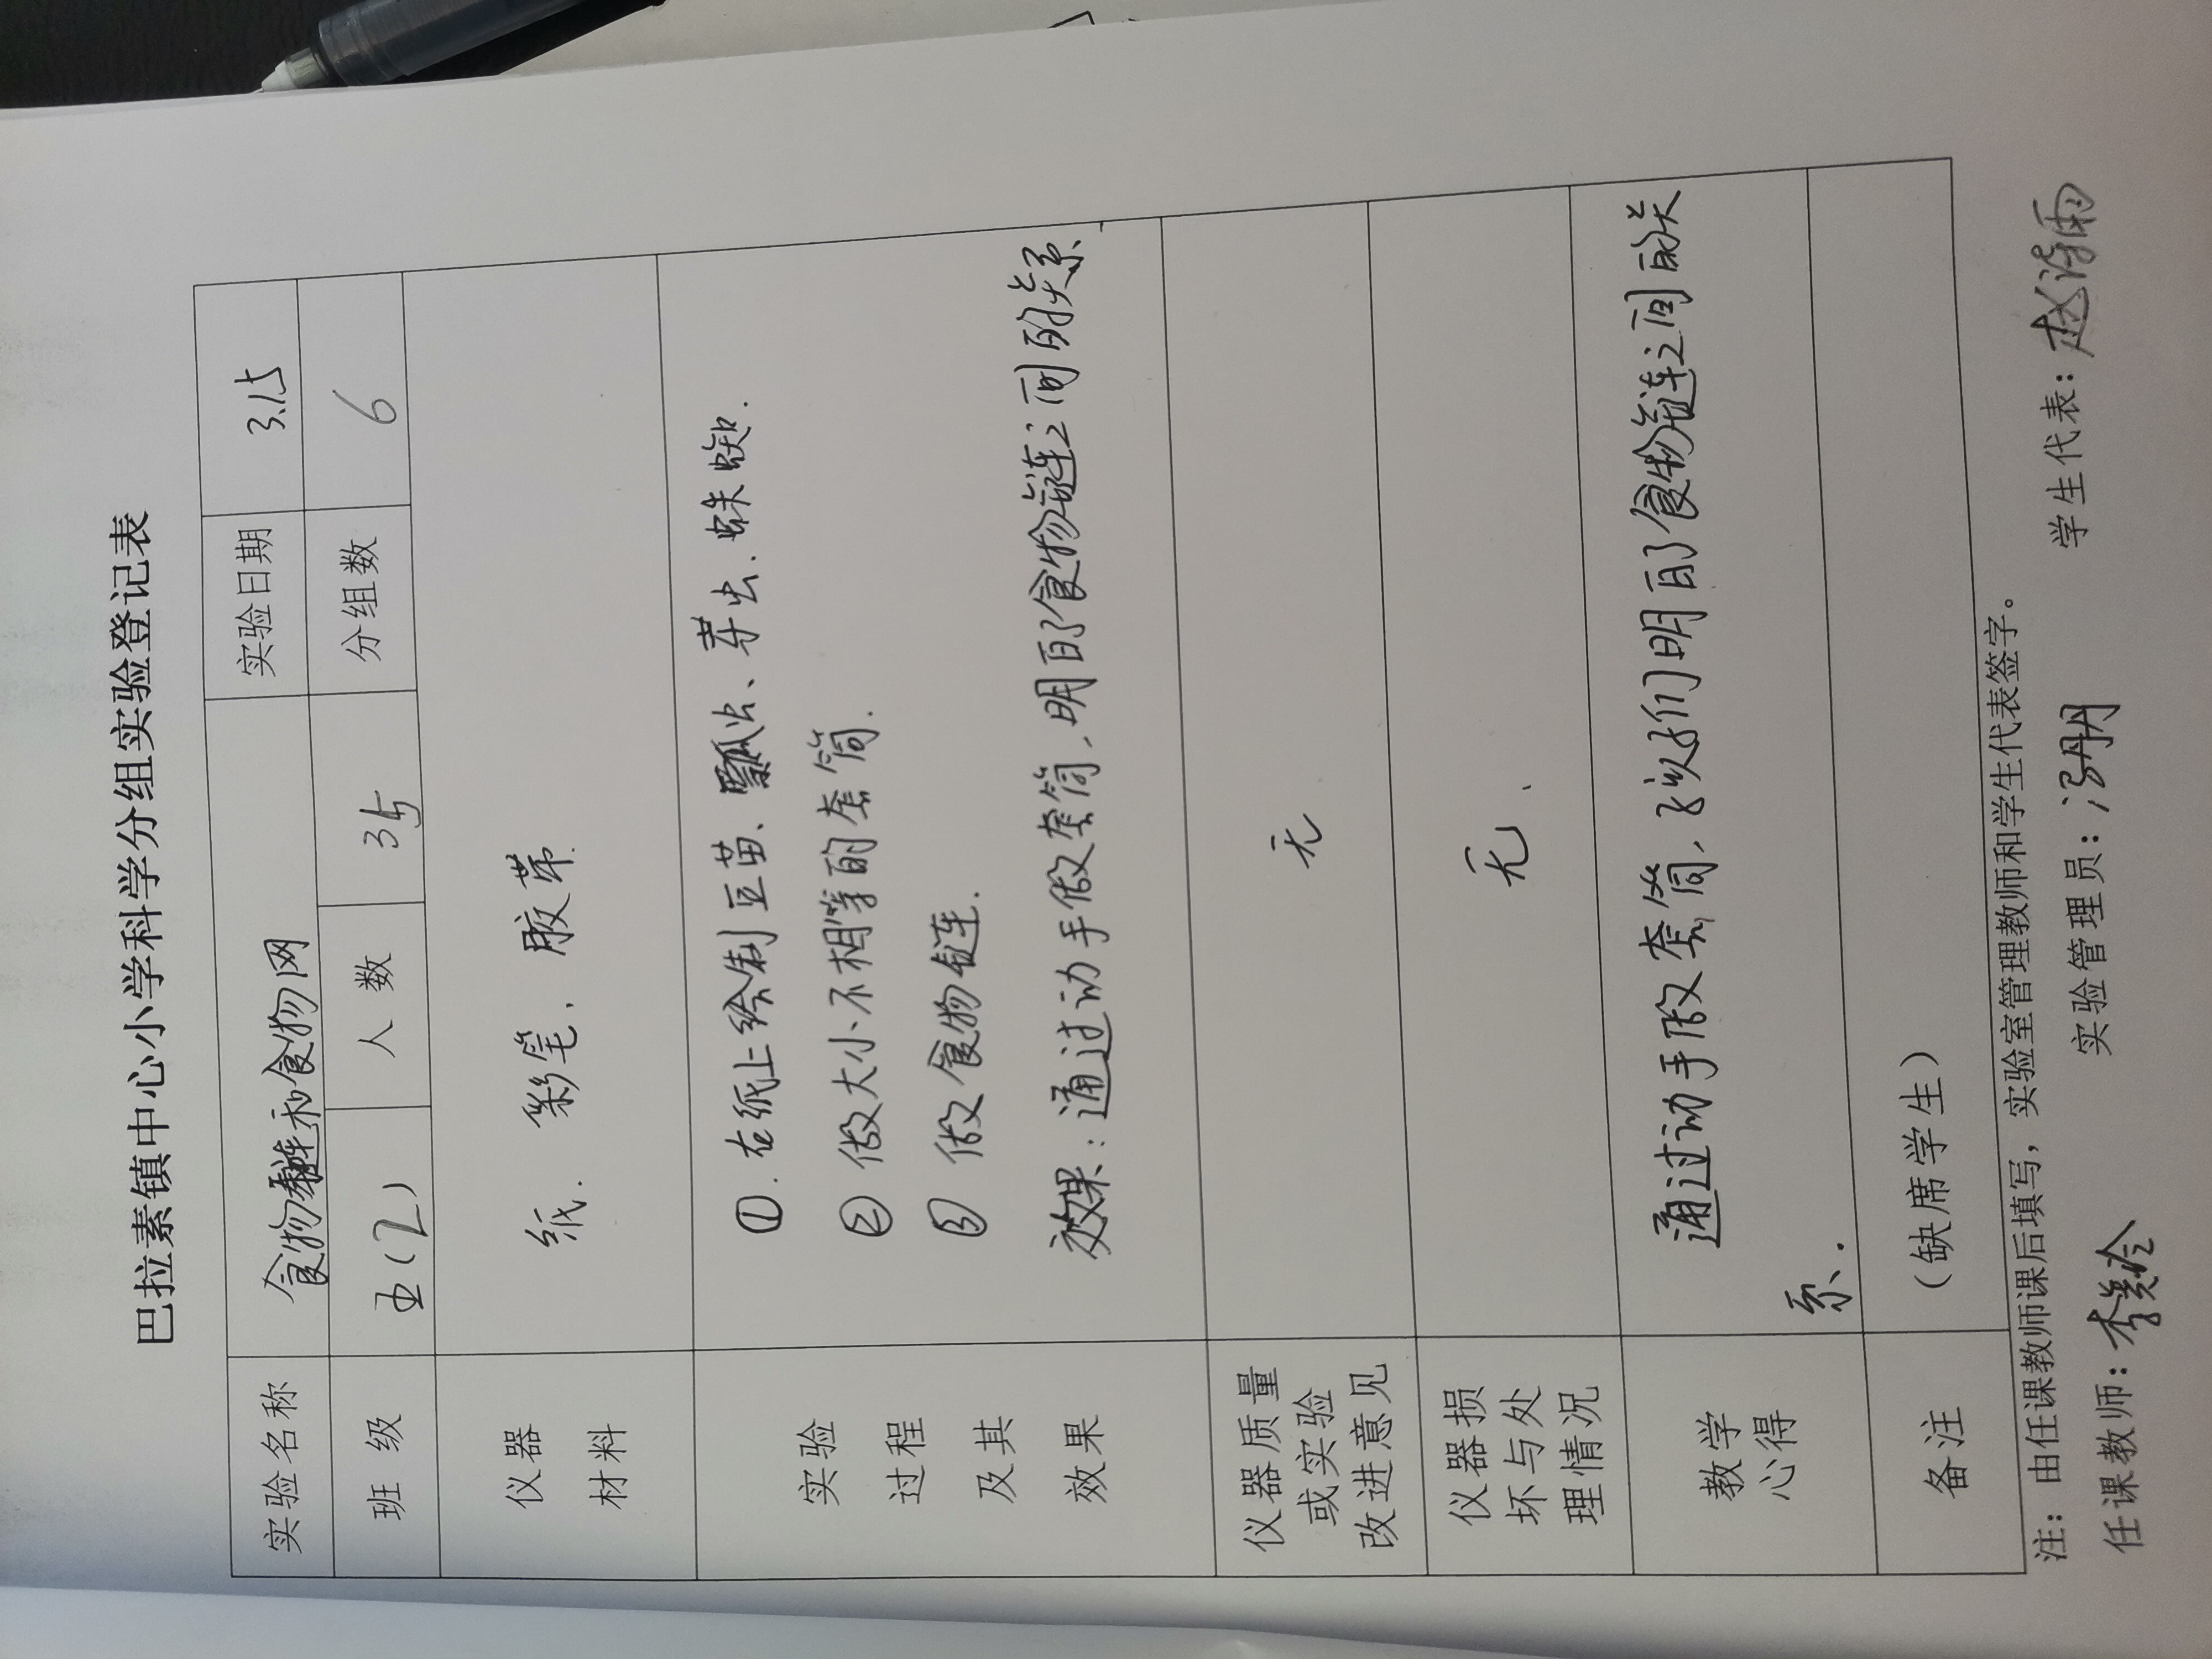 巴拉素镇中心小学科学分组实验登记表
实验名称 食物链和食物网 实验日期 3.15
班 级 五(2) 人 数 35 分组数 6
仪器
材料
纸. 彩笔. 胶带.
实验
过程
及其
效果
①. 在纸上绘制豆苗、瓢虫、芽虫、蜘蛛.
② 做大小不相等的套筒.
③ 做食物链.
效果:通过动手做套筒,明白了食物链之间的关系.
仪器质量
或实验
改进意见
无
仪器损
坏与处
理情况
无.
教学
心得
通过动手做套筒,孩子们明白了食物链之间的关
系.
备注 (缺席学生)
注:由任课教师课后填写,实验室管理教师和学生代表签字。
任课教师: 实验管理员: 学生代表:赵